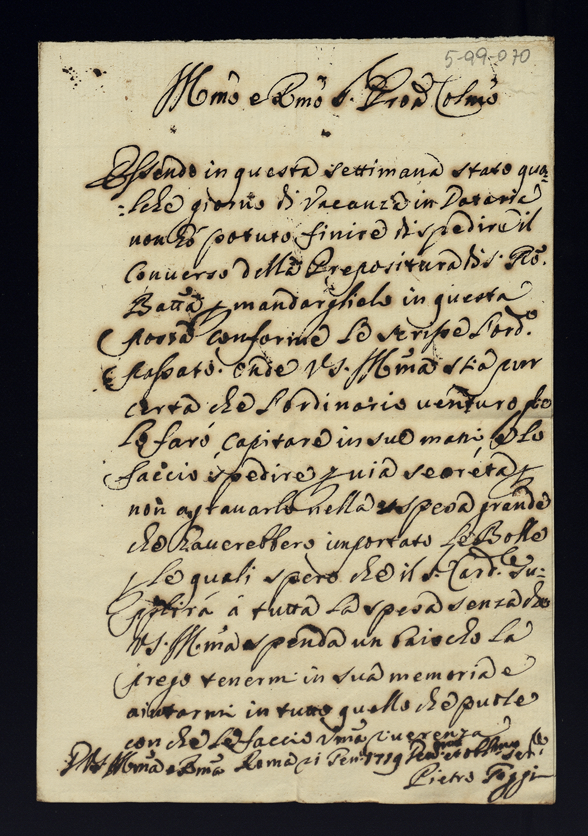 5-99-070
Illmo e Rmo S. Prone Colmo
Essendo in questa settimana stato qua=
=lche giorno di Vacanza in Dataria
non hò potuto finire di spedire il
converso della Prepositura di S. Gio.
Batta p mandarglielo in questa
posta conforme le scrissi l'ord.
passato. onde VS. Illma stia pur
certa che l'ordinario venturo
le farò capitare in sue mani, e lo
faccio spedire p via secreta p
non agravarlo nella spesa grande
che haverebbero importato le Bolle
p le quali spero che il S. Card.le su=
pplirà à tutta la spesa senza che
VS. Illma spenda un baiocho la
prego tenermi in sua memoria e
aiutarmi in tutto quello che puole
con che le faccio uma riverenza
D VS Illma e Rma Roma 21 Gen. 1719
Pietro Poggi